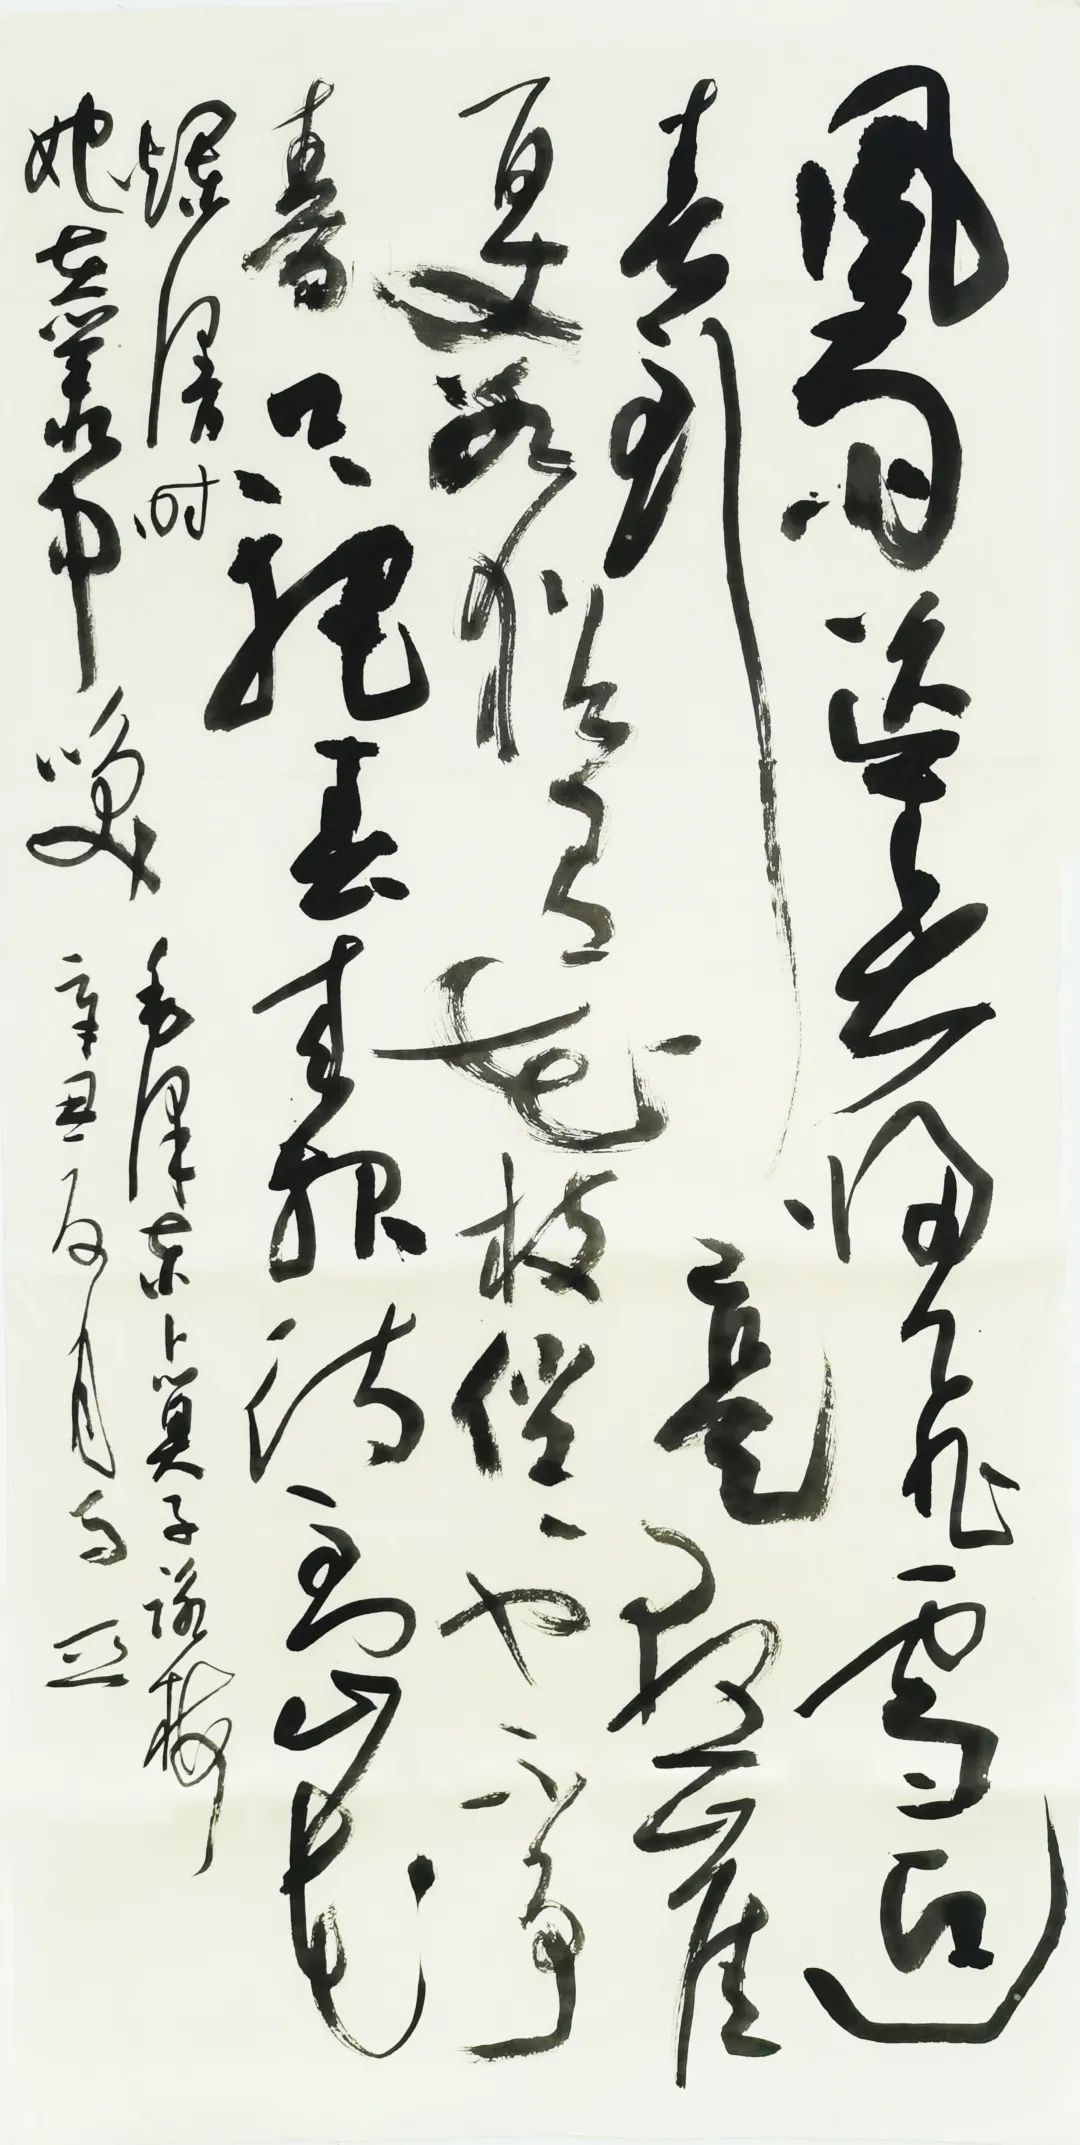 風雨送春歸飛雪迎
春到已是懸崖
百丈冰猶有花枝俏俏也不爭
春只把春來報待到山花
爛漫時
她在叢中笑
毛泽東卜算子詠梅
辛丑夏月